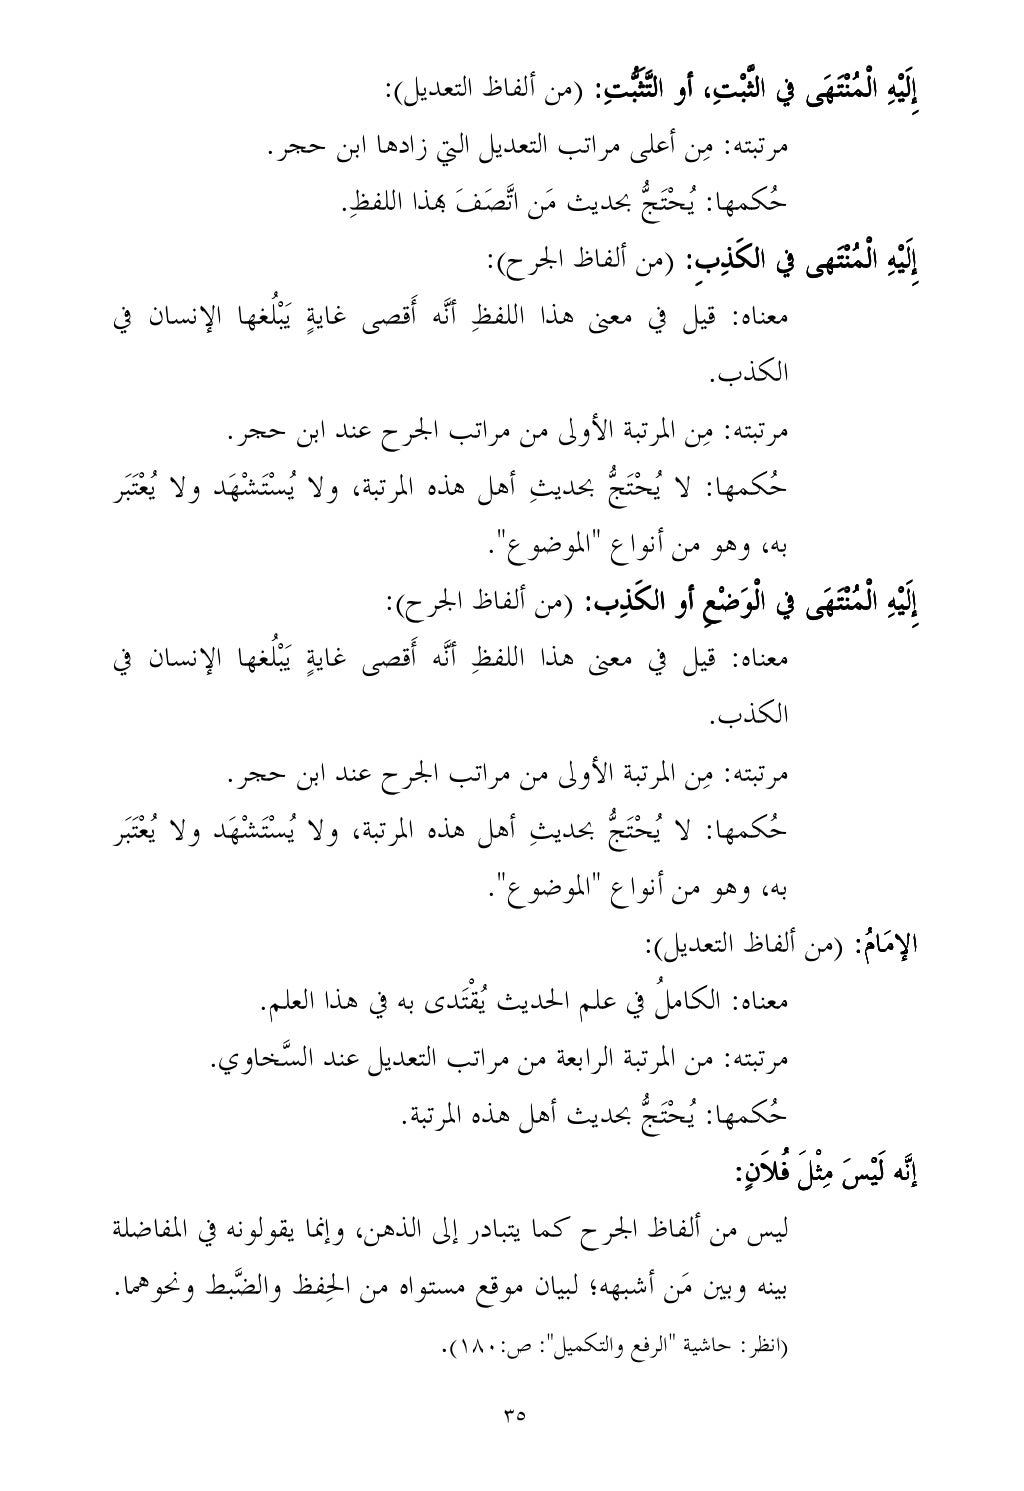 إِلَيْهِ الْمُنْتَهَى في الثَّبْتِ، أو التَّثَبُّتِ: (من ألفاظ التعديل):
مرتبته: مِن أعلى مراتب التعديل التي زادها ابن حجر.
حُكمها: يُحْتَجُّ بحديث مَن اتَّصَفَ بهذا اللفظِ.
إِلَيْهِ الْمُنْتَهى في الكَذِبِ: (من ألفاظ الجرح):
معناه: قيل في معنى هذا اللفظِ أنَّه أَقصى غايةٍ يَبْلُغها الإنسان في
الكذب.
مرتبته: مِن المرتبة الأولى من مراتب الجرح عند ابن حجر.
حُكمها: لا يُحْتَجُّ بحديثِ أهل هذه المرتبة، ولا يُسْتَشْهَد ولا يُعْتَبَر
به، وهو من أنواع "الموضوع".
إِلَيْهِ الْمُنْتَهَى في الْوَضْعِ أو الكَذِب: (من ألفاظ الجرح):
معناه: قيل في معنى هذا اللفظِ أنَّه أَقصى غايةٍ يَبْلُغها الإنسان في
الكذب.
مرتبته: مِن المرتبة الأولى من مراتب الجرح عند ابن حجر.
حُكمها: لا يُحْتَجُّ بحديثِ أهل هذه المرتبة، ولا يُسْتَشْهَد ولا يُعْتَبَر
به، وهو من أنواع "الموضوع".
الإمَامُ: (من ألفاظ التعديل):
معناه: الكاملُ في علم الحديث يُقْتَدى به في هذا العلم.
مرتبته: من المرتبة الرابعة من مراتب التعديل عند السَّخاوي.
حُكمها: يُحْتَجُّ بحديث أهل هذه المرتبة.
إنَّه لَيْسَ مِثْلَ فُلاَنٍ:
ليس من ألفاظ الجرح كما يتبادر إلى الذهن، وإنما يقولونه في المفاضلة
بينه وبين مَن أشبهه؛ لبيان موقع مستواه من الحِفظ والضَّبط ونحوهما.
(انظر: حاشية "الرفع والتكميل": ص:١٨٠).
٣٥